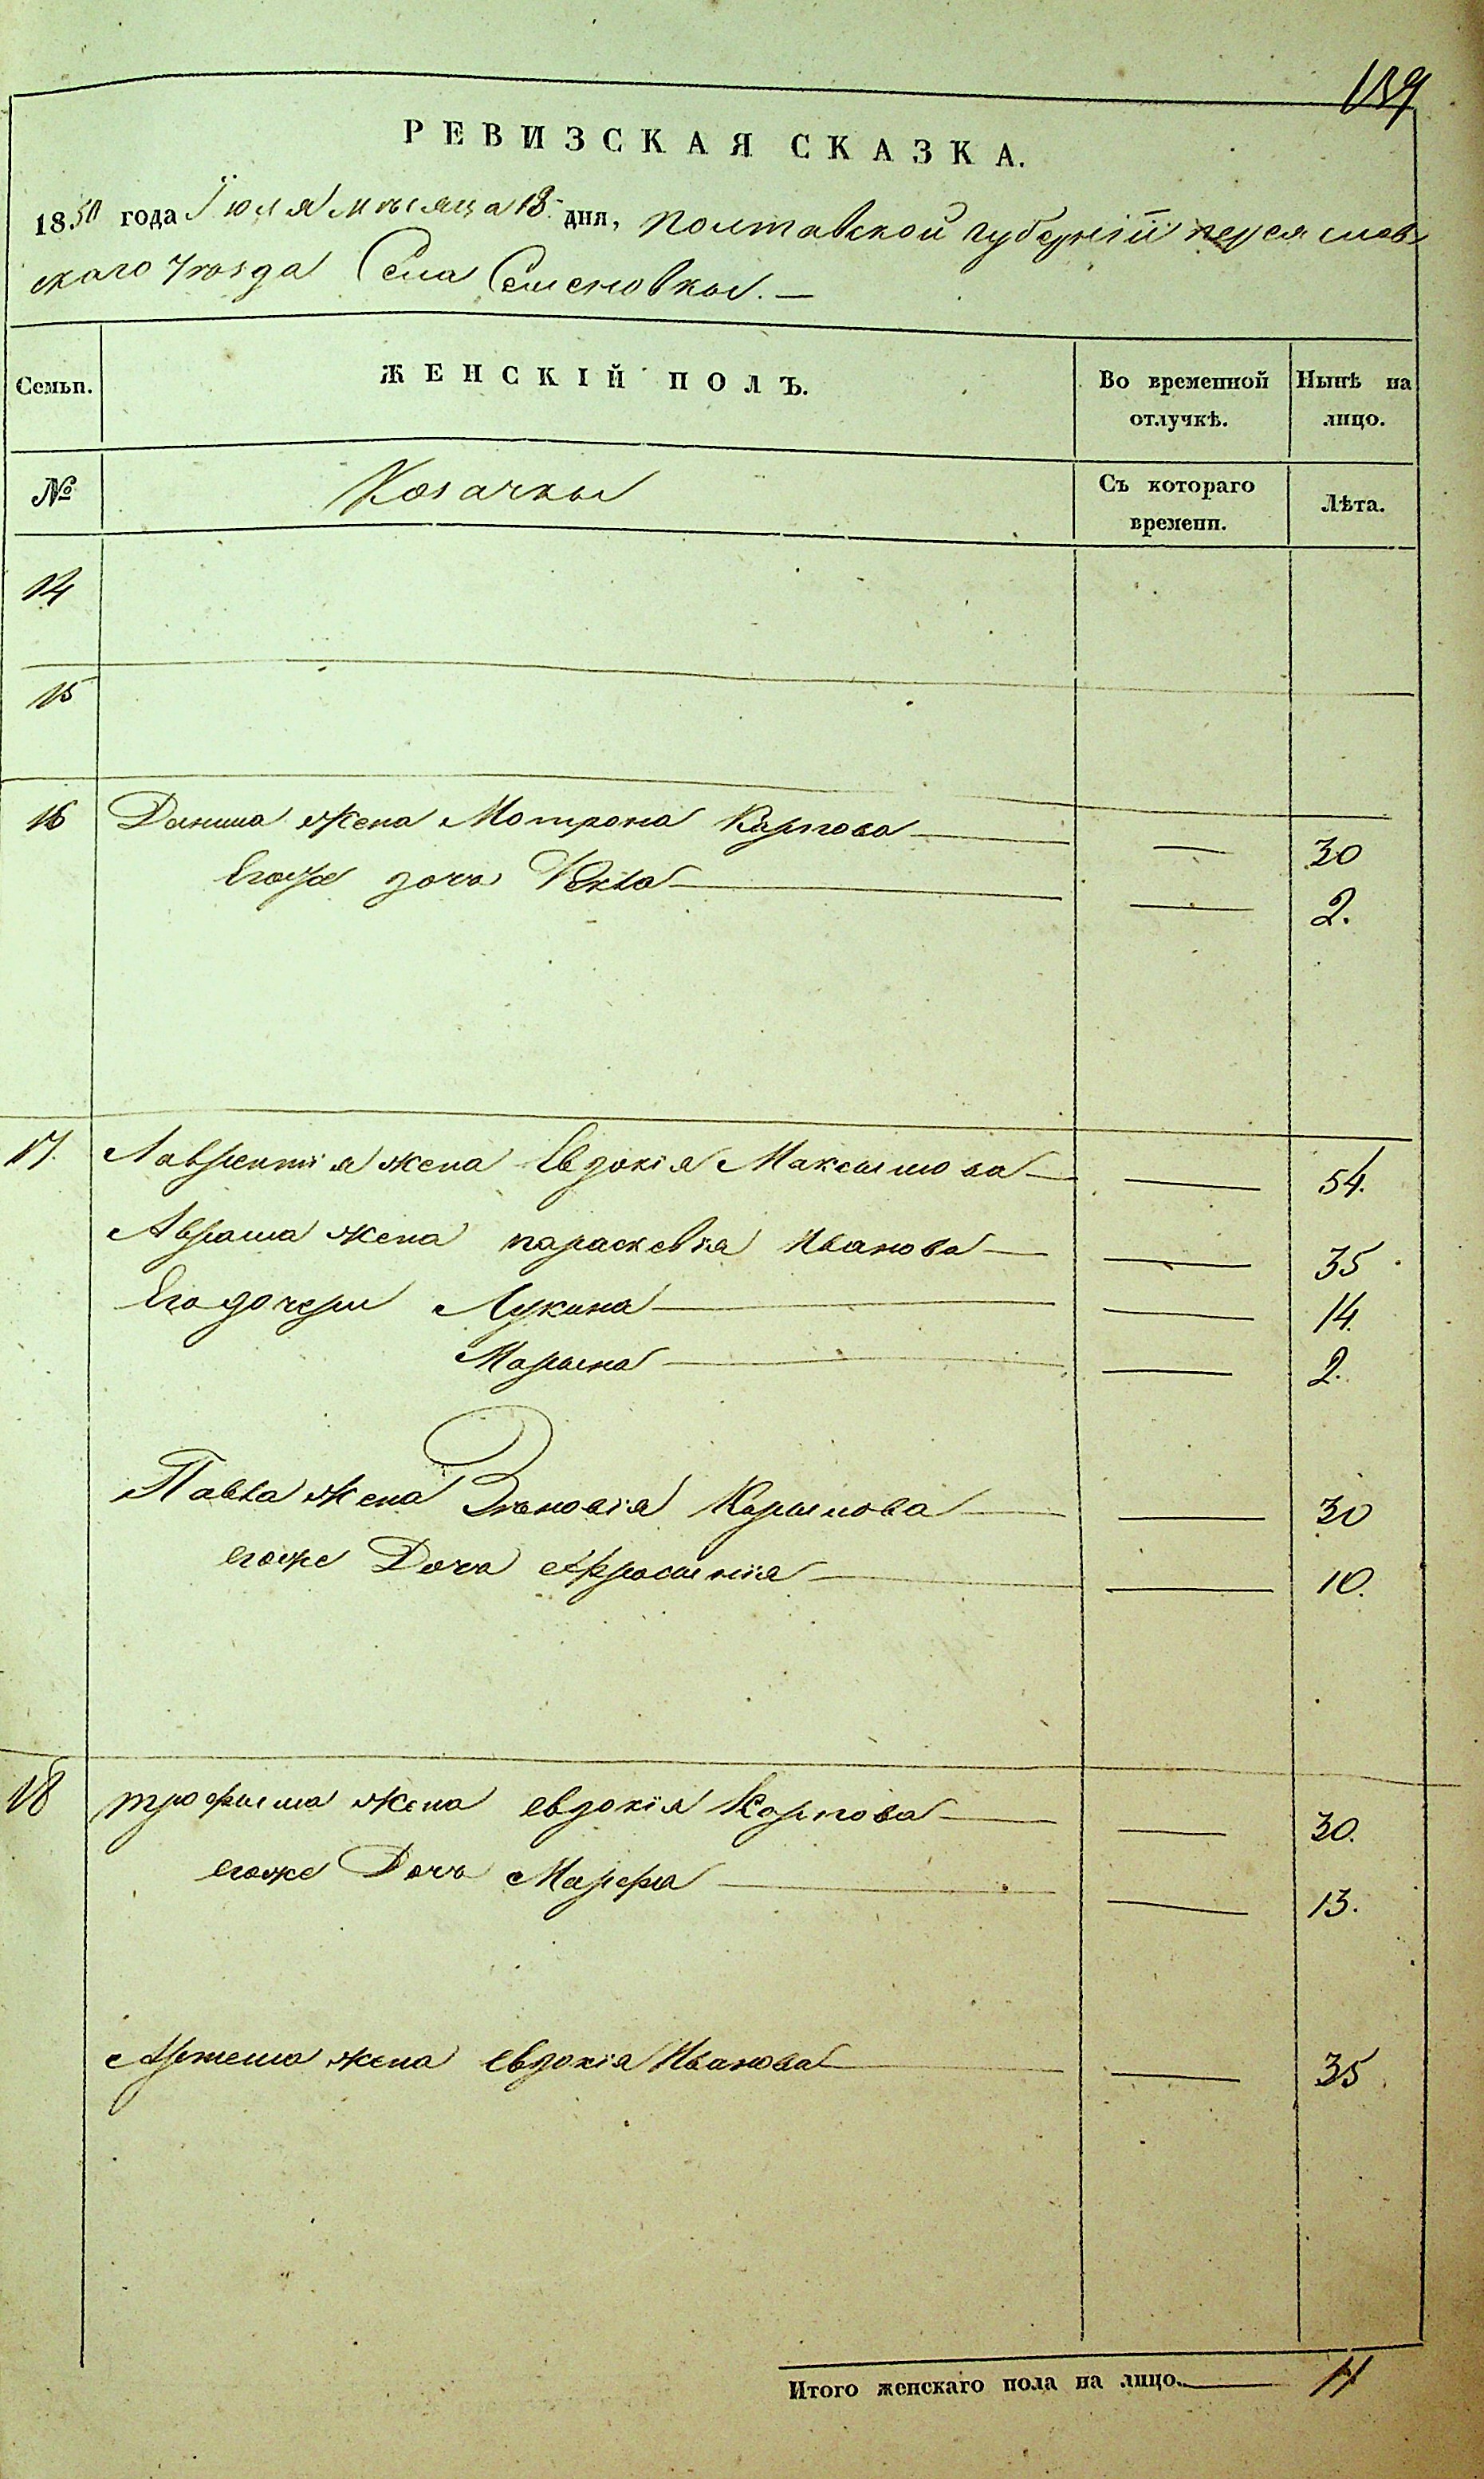 139
РЕВИЗСКАЯ СКАЗКА.
1850 года Іюля мѣсяца 18 дня, Полтавской губерніи переяслав
скаго уѣзда Села Семеновки. —
Семьи. ЖЕНСКІЙ ПОЛЪ. Во временной отлучкѣ. Нынѣ на лицо.
№ Козачки Съ котораго времени. Лѣта.
14
15
16 Данила жена Мотрона Карпова — — 30
Егоже дочь Векла — — 2.
17. Лаврентія жена Евдокія Максимова — — 54.
Абрама жена параскевія Иванова — — 35
Его дочери Лукина — — 14.
Марина — — 2.
Павла жена Зѣновія Каримова — — 30
егоже Дочь Афросинія — — 10.
18 трофима жена евдокія Карпова — — 30.
егоже Дочь Марфа — — 13.
Артема жена евдокія Иванова — — 35
Итого женскаго пола на лицо. — 11